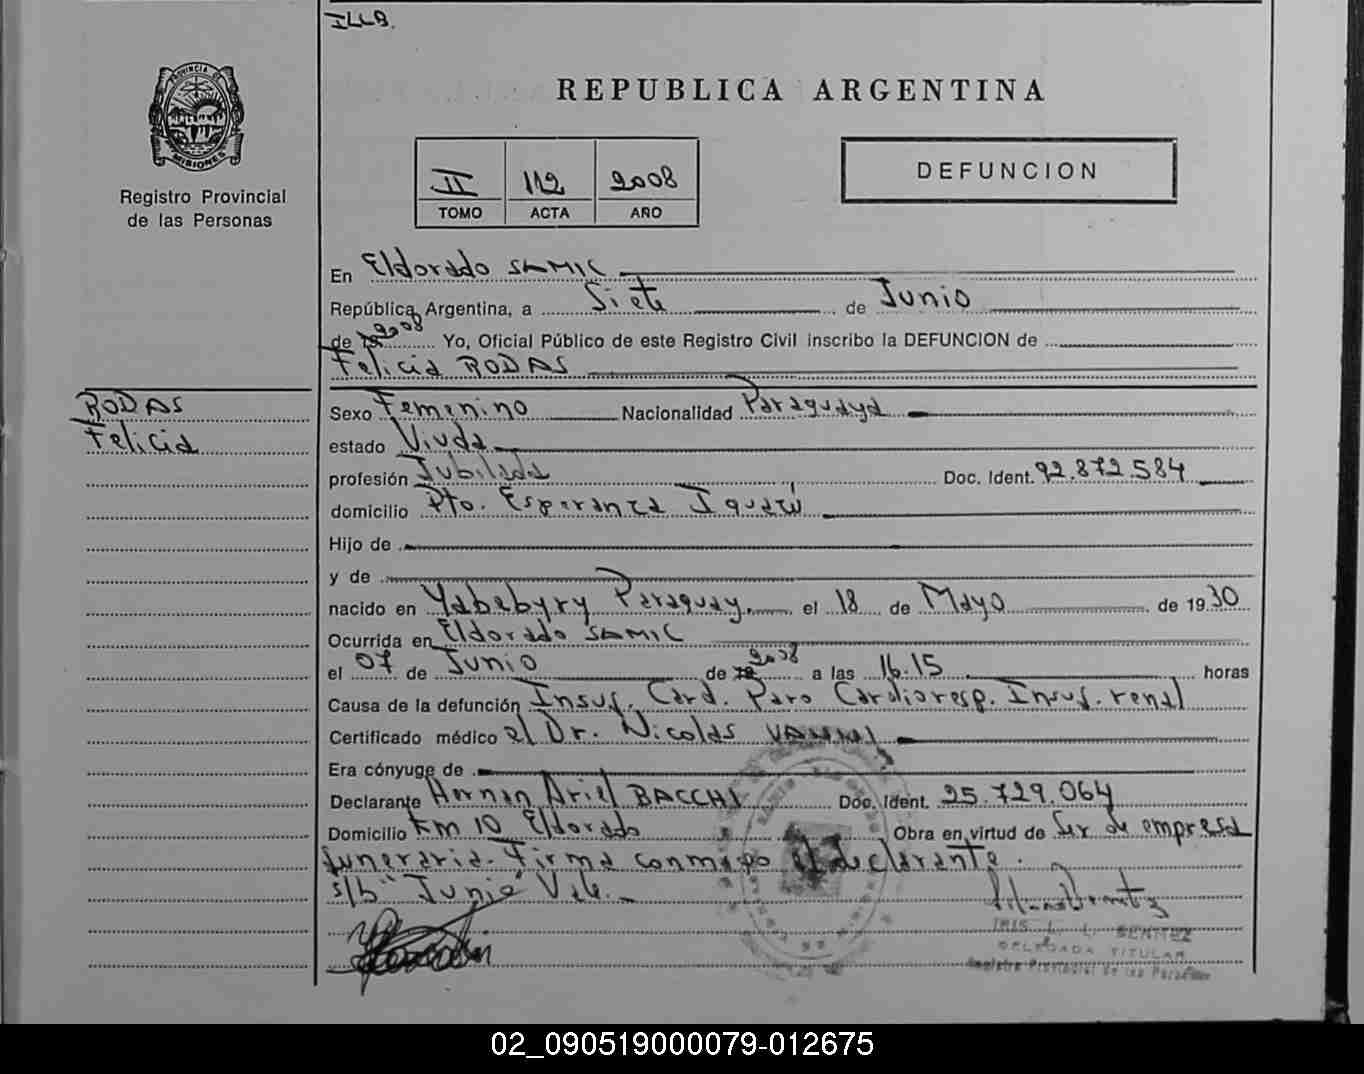 ILLB.
PROVINCIA DE
MISIONES
Registro Provincial
de las Personas
REPUBLICA ARGENTINA
II 112 2008
TOMO ACTA AÑO
DEFUNCION
En Eldorado SAMIC
República Argentina, a Siete de Junio
de 19 2008 Yo, Oficial Público de este Registro Civil inscribo la DEFUNCION de
Felicia RODAS
RODAS
Felicia
Sexo Femenino Nacionalidad Paraguaya
estado Viuda
profesión Jubilada Doc. Ident. 92.872.584
domicilio Pto. Esperanza Iguazú
Hijo de
y de
nacido en Yabebyry Paraguay. el 18 de Mayo de 1930
Ocurrida en Eldorado SAMIC
el 07 de Junio de 19 2008 a las 16.15 horas
Causa de la defunción Insuf. Card. Paro Cardioresp. Insuf. renal
Certificado médico el Dr. Nicolas VANNI
Era cónyuge de
Declarante Hernan Ariel BACCHI Doc. Ident. 25.729.064
Domicilio Km 10 Eldorado Obra en virtud de Ser de empresa
funeraria. Firma conmigo el declarante.
s/b "Junio" Vale.
IRIS L. BENITEZ
DELEGADA TITULAR
Registro Provincial de las Personas
02_090519000079-012675